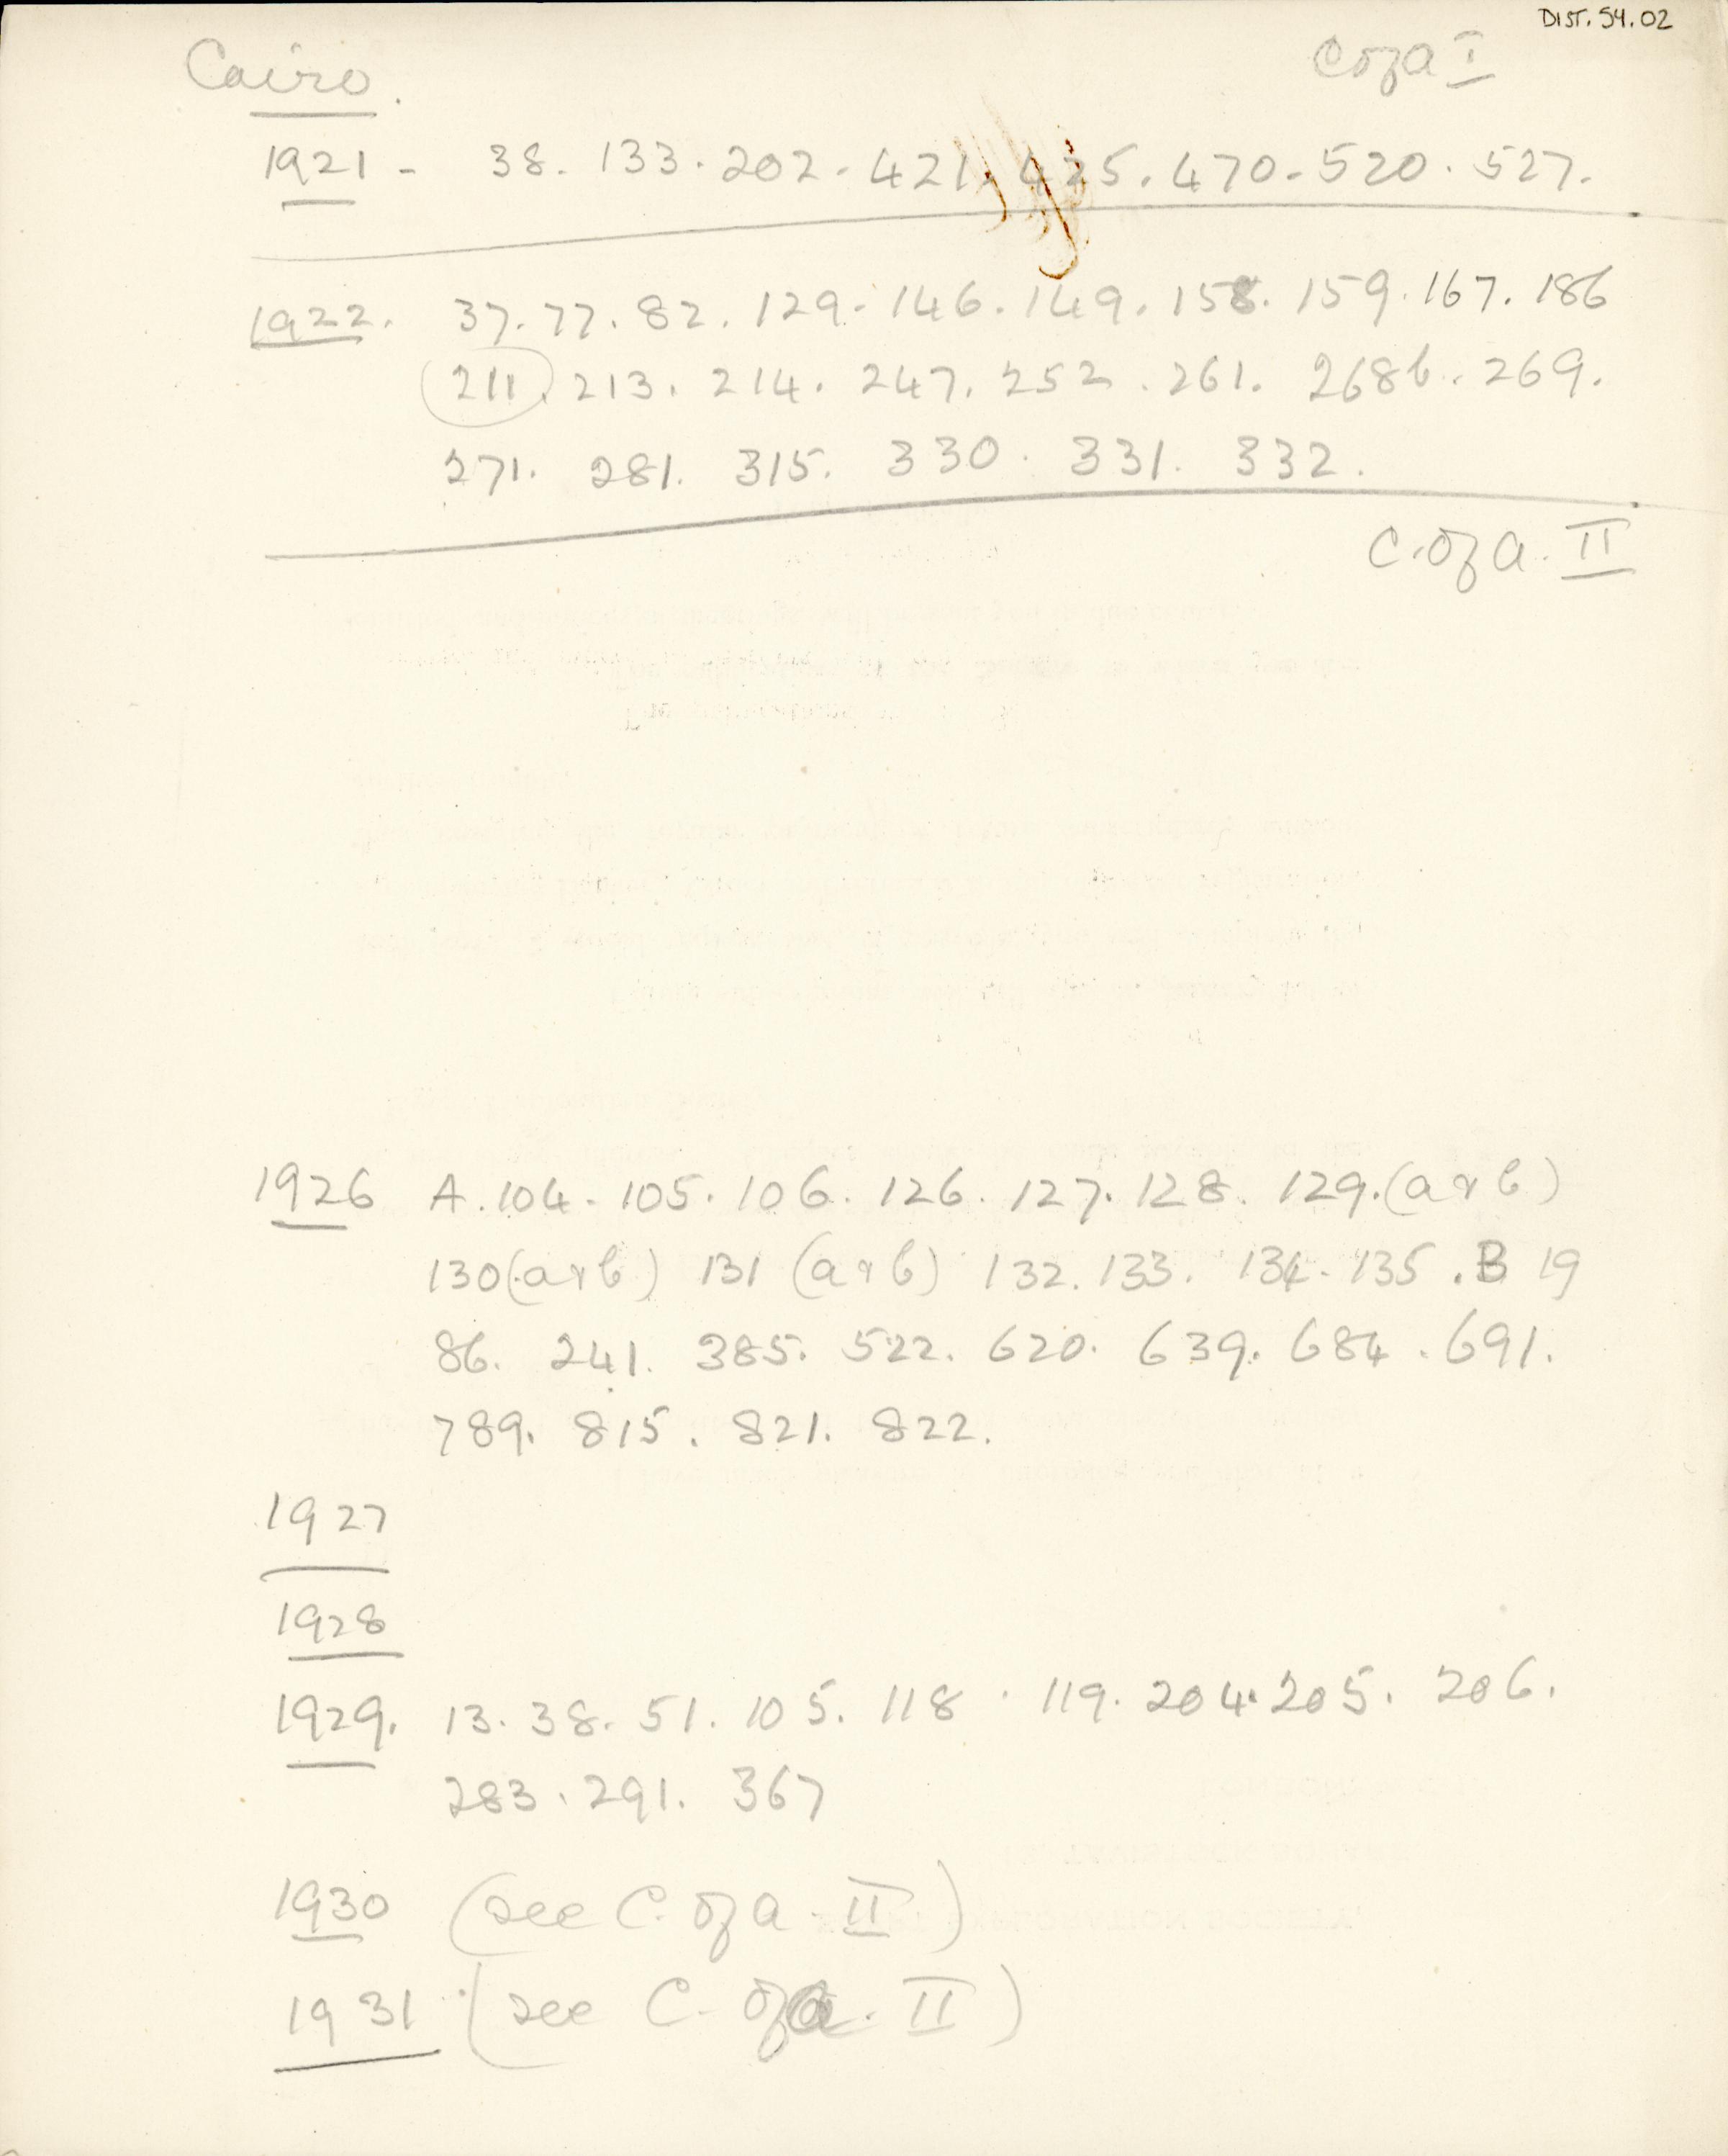 DIST. 54.02
Cairo. C of A I
1921 - 38. 133. 202. 421. 425. 470. 520. 527.
1922. 37. 77. 82. 129. 146. 149. 158. 159. 167. 186
211. 213. 214. 247. 252. 261. 268b. 269.
271. 281. 315. 330. 331. 332.
C. of A. II
1926 A. 104. 105. 106. 126. 127. 128. 129. (a & b)
130 (a & b) 131 (a & b) 132. 133. 134. 135. B 19
86. 241. 385. 522. 620. 639. 684. 691.
789. 815. 821. 822.
1927
1928
1929. 13. 38. 51. 105. 118. 119. 204. 205. 206.
283. 291. 367
1930 (see C. of A. II)
1931 (see C. of A. II)